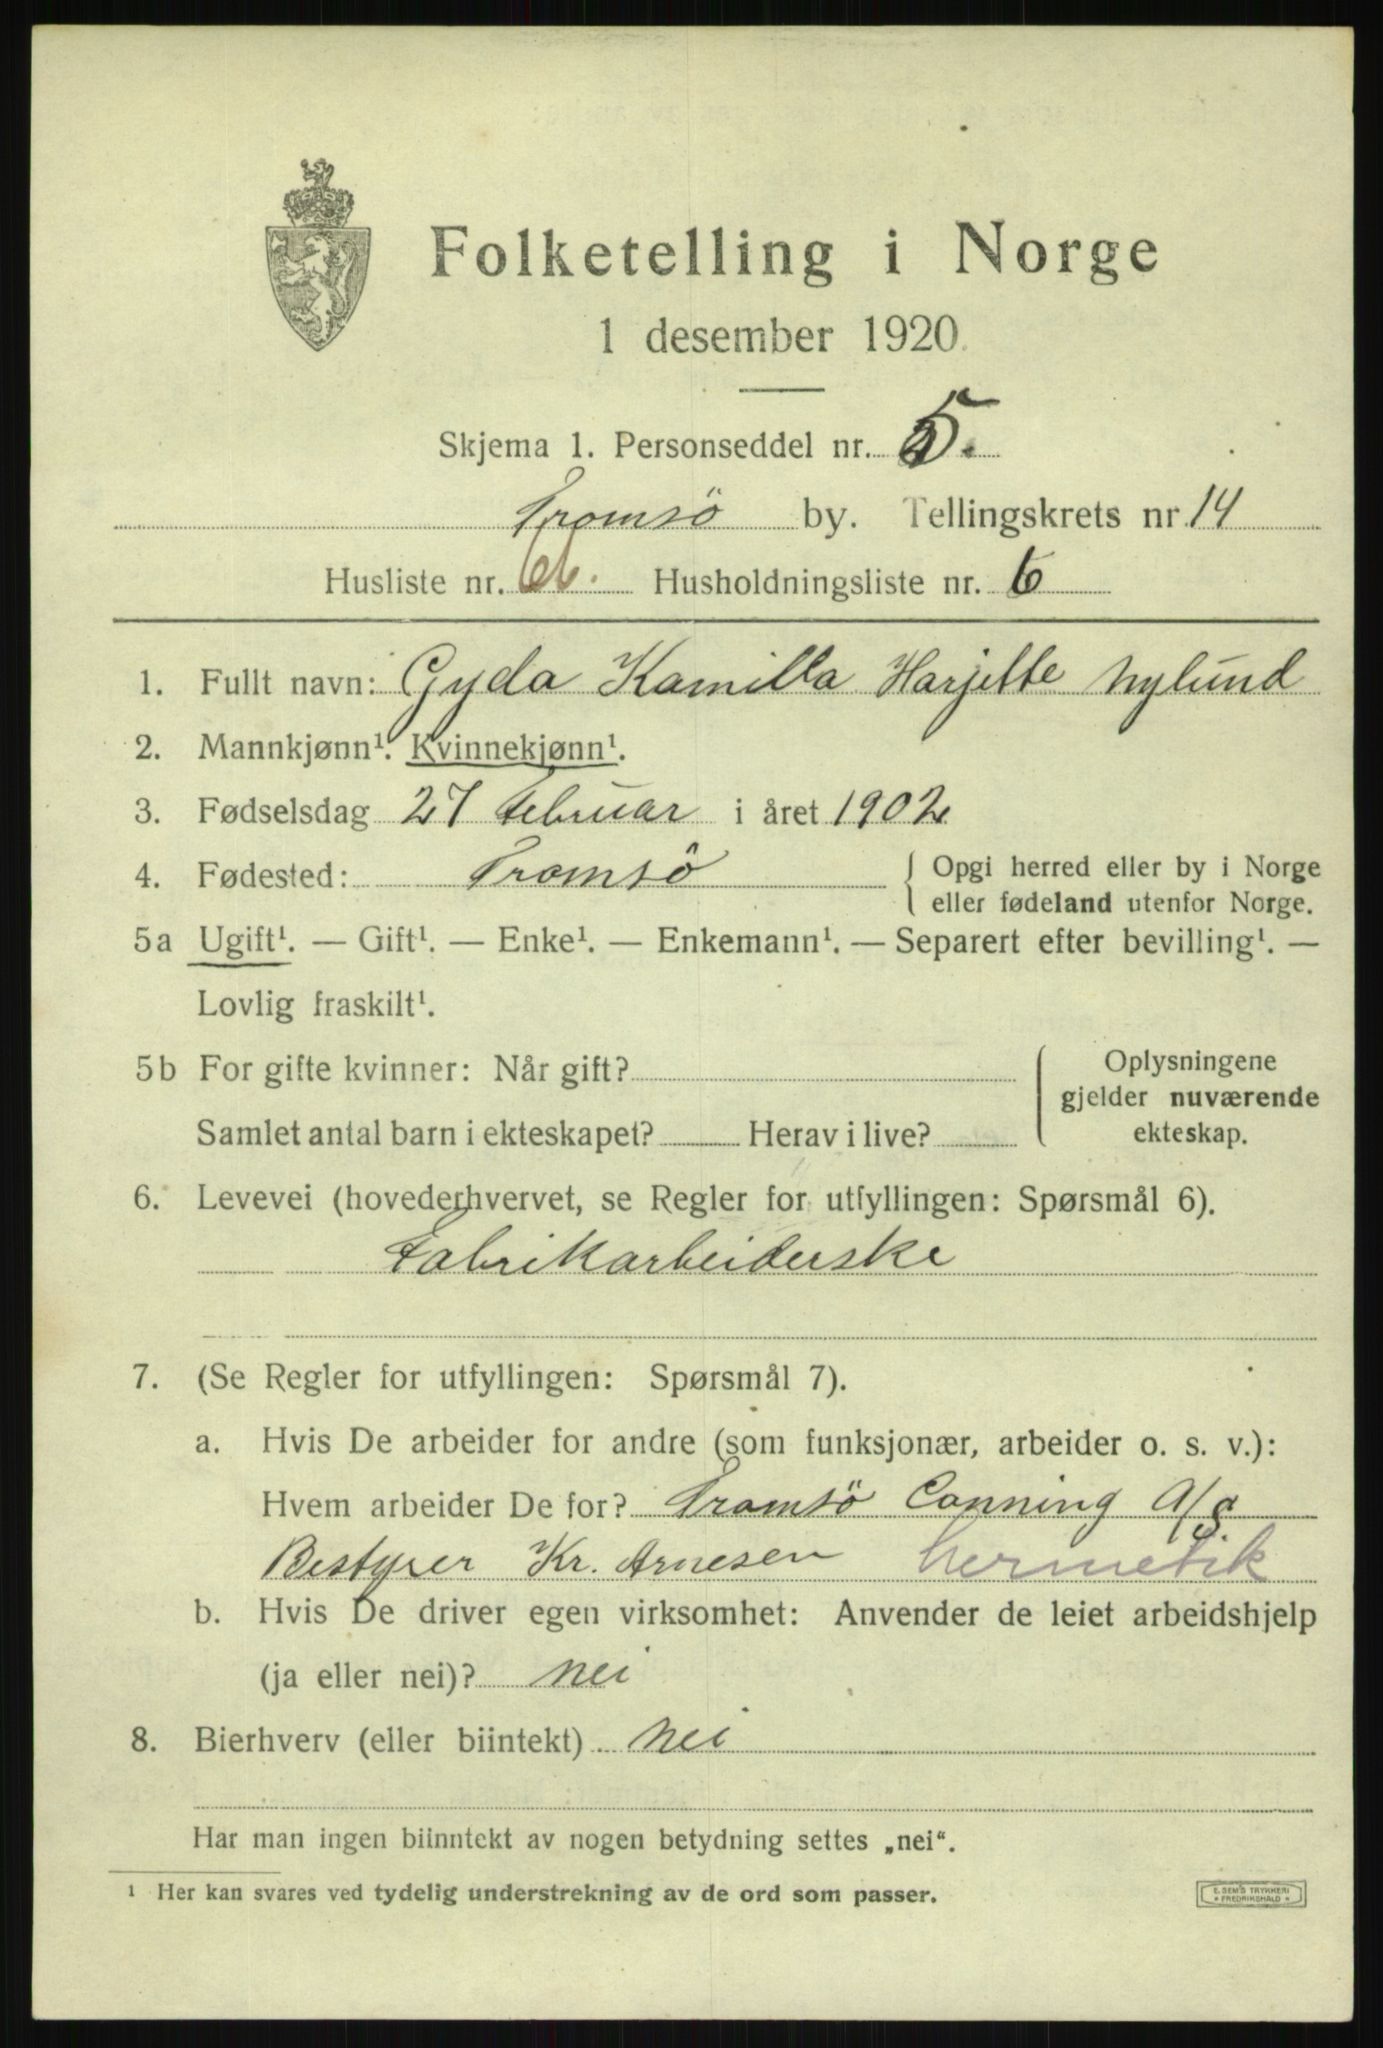 Folketelling i Norge
1 desember 1920.
Skjema 1. Personseddel nr. 5.
Tromsö by. Tellingskrets nr. 14
Husliste nr. Husholdningsliste nr. 6
1. Fullt navn: Gyda Kamilla Harjette Nylund
2. Mannkjønn¹. Kvinnekjønn¹.
3. Fødselsdag 27 Februar i året 1902
4. Fødested: Tromsö { Opgi herred eller by i Norge
eller fødeland utenfor Norge.
5a Ugift¹. — Gift¹. — Enke¹. — Enkemann¹. — Separert efter bevilling¹. —
Lovlig fraskilt¹.
5b For gifte kvinner: Når gift?
Samlet antal barn i ekteskapet? Herav i live?
Oplysningene
gjelder nuværende
ekteskap.
6. Levevei (hovederhvervet, se Regler for utfyllingen: Spørsmål 6).
Fabrikarbeiderske
7. (Se Regler for utfyllingen: Spørsmål 7).
a. Hvis De arbeider for andre (som funksjonær, arbeider o. s. v.):
Hvem arbeider De for? Tromsö Canning A/S
Bestyrer Kr. Arnesen hermetik
b. Hvis De driver egen virksomhet: Anvender de leiet arbeidshjelp
(ja eller nei)? nei
8. Bierhverv (eller biintekt) nei
Har man ingen biinntekt av nogen betydning settes „nei“.
¹ Her kan svares ved tydelig understrekning av de ord som passer.
E. SEM'S TRYKKERI
* FREDRIKSHALD *